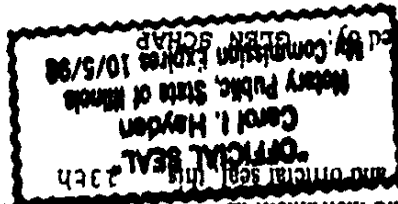 and official seal, this 23th
"OFFICIAL SEAL"
Carol I. Hayden
Notary Public, State of Illinois
My Commission Expires 10/5/98
ed by: GLEN SCHAP